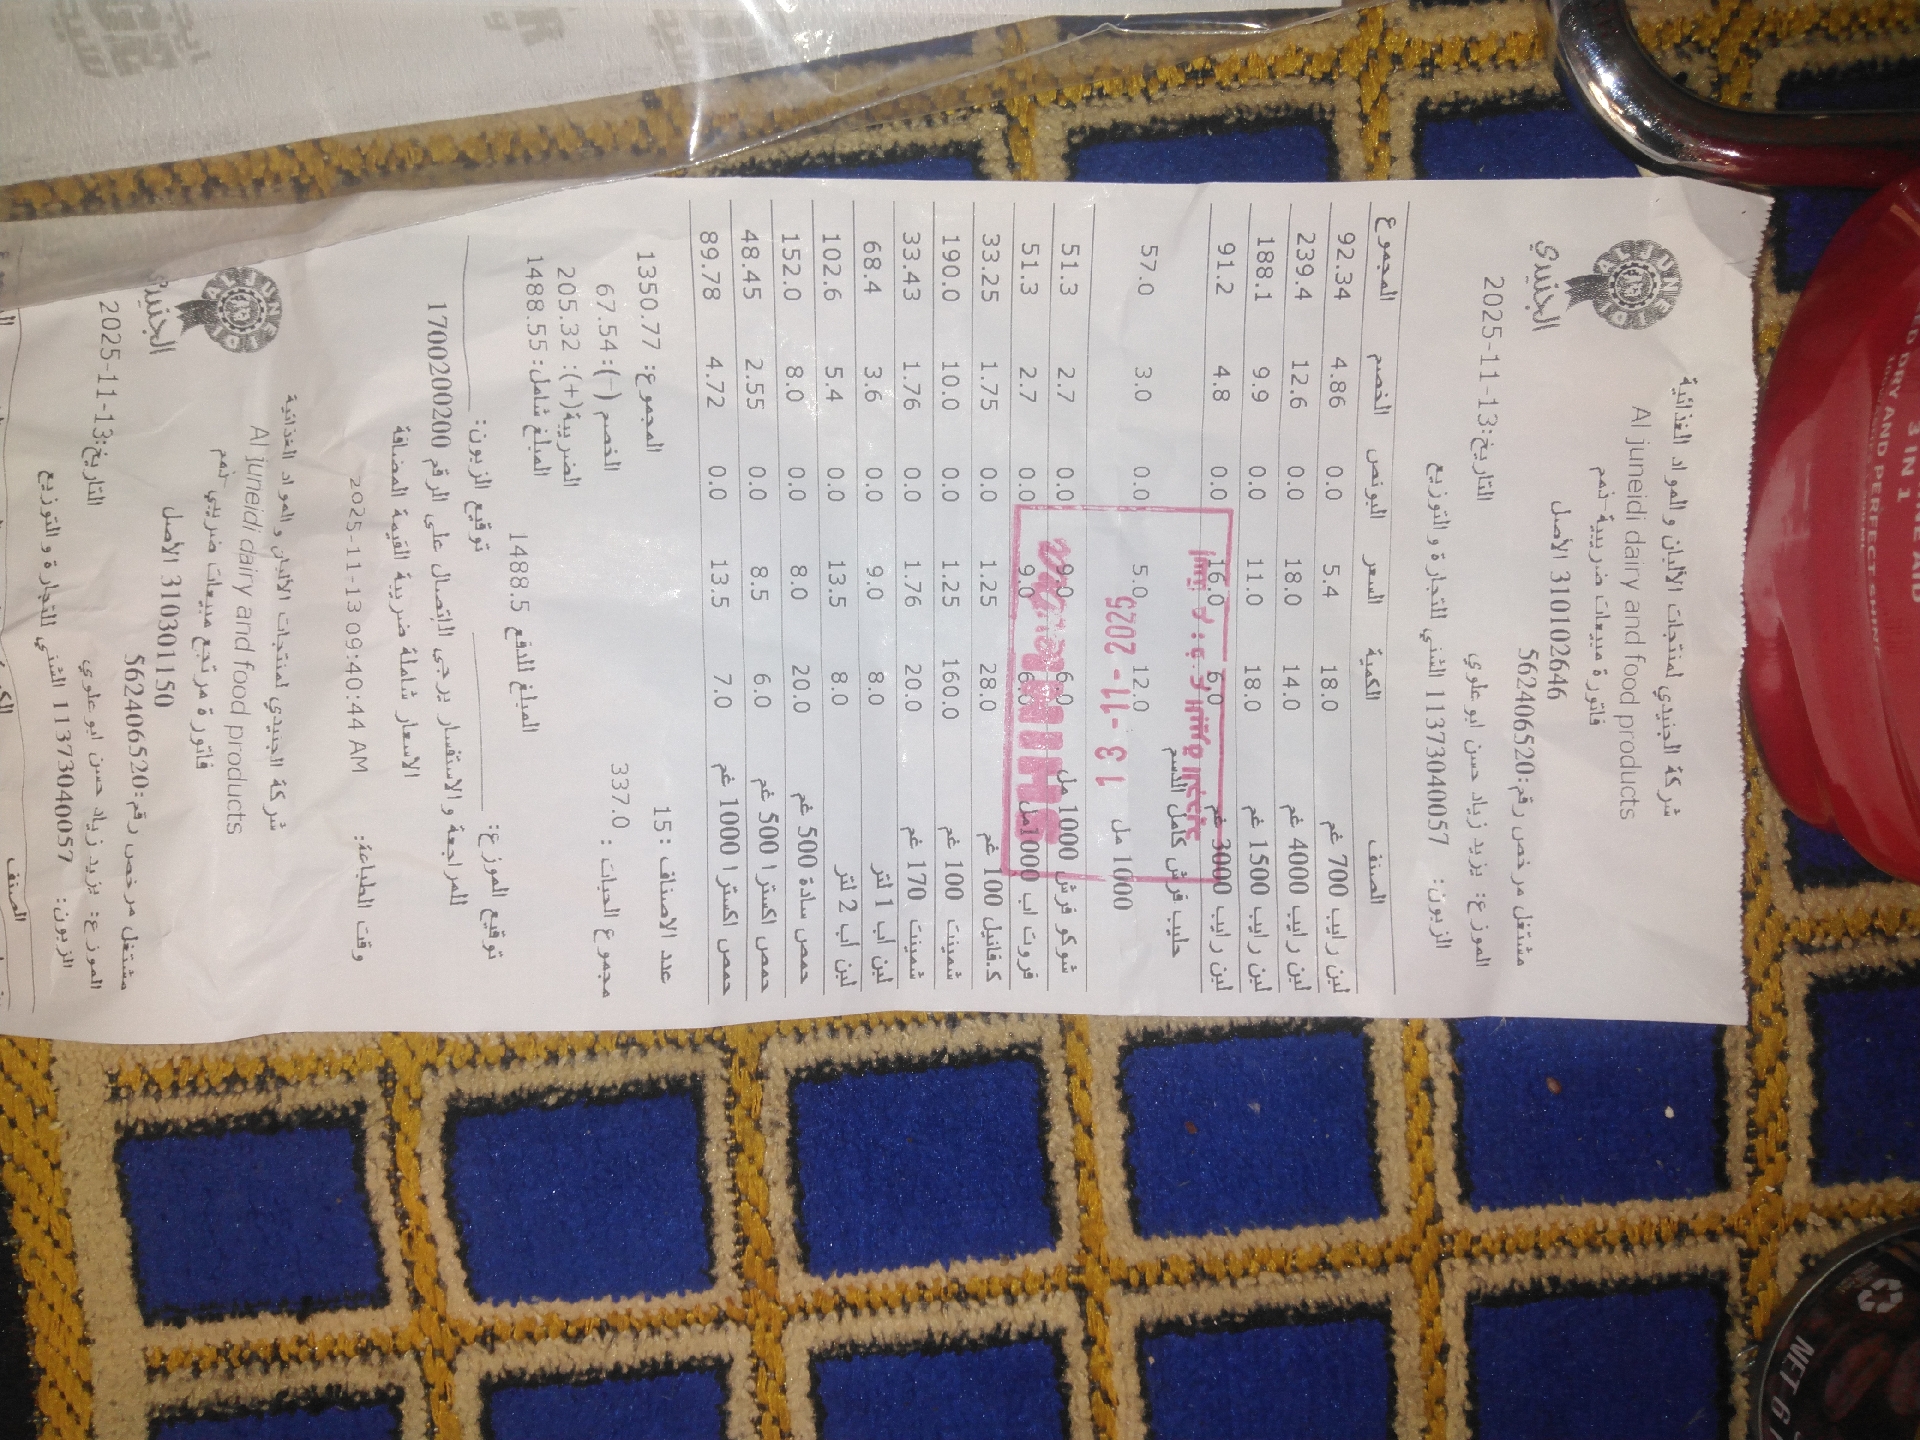 AL JUNEIDI
الجنيدي
شركة الجنيدي لمنتجات الألبان والمواد الغذائية
Al juneidi dairy and food products
فاتورة مبيعات ضريبية-ذمم
310102646 الأصل
مشتغل مرخص رقم:562406520
التاريخ:13-11-2025
الموزع: يزيد زياد حسن ابو علوي
الزبون: 11373040057 الشني للتجارة و التوزيع
الصنف الكمية السعر البونص الخصم المجموع
لبن رايب 700 غم 18.0 5.4 0.0 4.86 92.34
لبن رايب 4000 غم 14.0 18.0 0.0 12.6 239.4
لبن رايب 1500 غم 18.0 11.0 0.0 9.9 188.1
لبن رايب 3000 غم 6.0 16.0 0.0 4.8 91.2
حليب فرش كامل الدسم
1000 مل 12.0 5.0 0.0 3.0 57.0
13-11-2025
شوكو فرش 1000 مل 6.0 9.0 0.0 2.7 51.3
فروت اب 1000مل 6.0 9.0 0.0 2.7 51.3
ك.فانيل 100 غم 28.0 1.25 0.0 1.75 33.25
شمينت 100 غم 160.0 1.25 0.0 10.0 190.0
شمينت 170 غم 20.0 1.76 0.0 1.76 33.43
لبن اب 1 لتر 8.0 9.0 0.0 3.6 68.4
لبن اب 2 لتر 8.0 13.5 0.0 5.4 102.6
حمص سادة 500 غم 20.0 8.0 0.0 8.0 152.0
حمص اكسترا 500 غم 6.0 8.5 0.0 2.55 48.45
حمص اكسترا 1000 غم 7.0 13.5 0.0 4.72 89.78
عدد الاصناف : 15 المجموع: 1350.77
مجموع الحبات : 337.0 الخصم (-): 67.54
الضريبة(+): 205.32
المبلغ شامل: 1488.55
المبلغ للدفع 1488.5
توقيع الموزع: توقيع الزبون:
للمراجعة و الاستفسار يرجى الاتصال على الرقم 1700200200
الاسعار شاملة ضريبة القيمة المضافة
وقت الطباعة: 2025-11-13 09:40:44 AM
الجنيدي
شركة الجنيدي لمنتجات الألبان والمواد الغذائية
Al juneidi dairy and food products
فاتورة مرتجع مبيعات ضريبي-ذمم
310301150 الأصل
مشتغل مرخص رقم:562406520
التاريخ:13-11-2025
الموزع: يزيد زياد حسن ابو علوي
الزبون: 11373040057 الشني للتجارة و التوزيع
الصنف
3 IN 1
AND PERFECT SHINE
NET